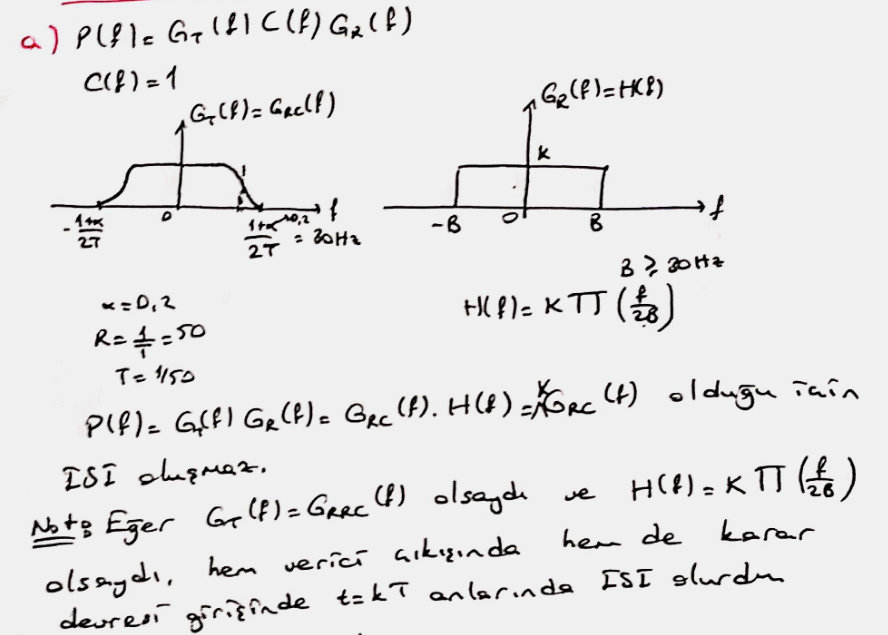 a) P(f) = G_T(f) C(f) G_R(f)
C(f) = 1
G_T(f) = G_RC(f)
G_R(f) = H(f)
K
-(1+α)/2T 0 (1+α)/2T = 30Hz f
0,2
-B 0 B f
B ≥ 30Hz
α = 0,2
H(f) = K Π (f/2B)
R = 1/T = 50
T = 1/50
P(f) = G_T(f) G_R(f) = G_RC(f). H(f) = K G_RC(f) olduğu için
ISI oluşmaz.
Not: Eğer G_T(f) = G_RRC(f) olsaydı ve H(f) = K Π (f/2B)
olsaydı, hem verici çıkışında hem de karar
devresi girişinde t=kT anlarında ISI olurdu